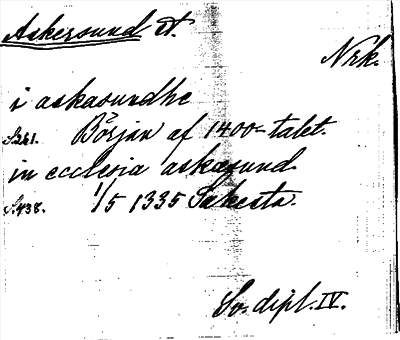 Askersund st.
Nrk.
i askasundhe
S.261. Början af 1400-talet.
in ecclesia askæsund.
S.438. 1/5 1335 Sakesta.
Sv. dipl. IV.